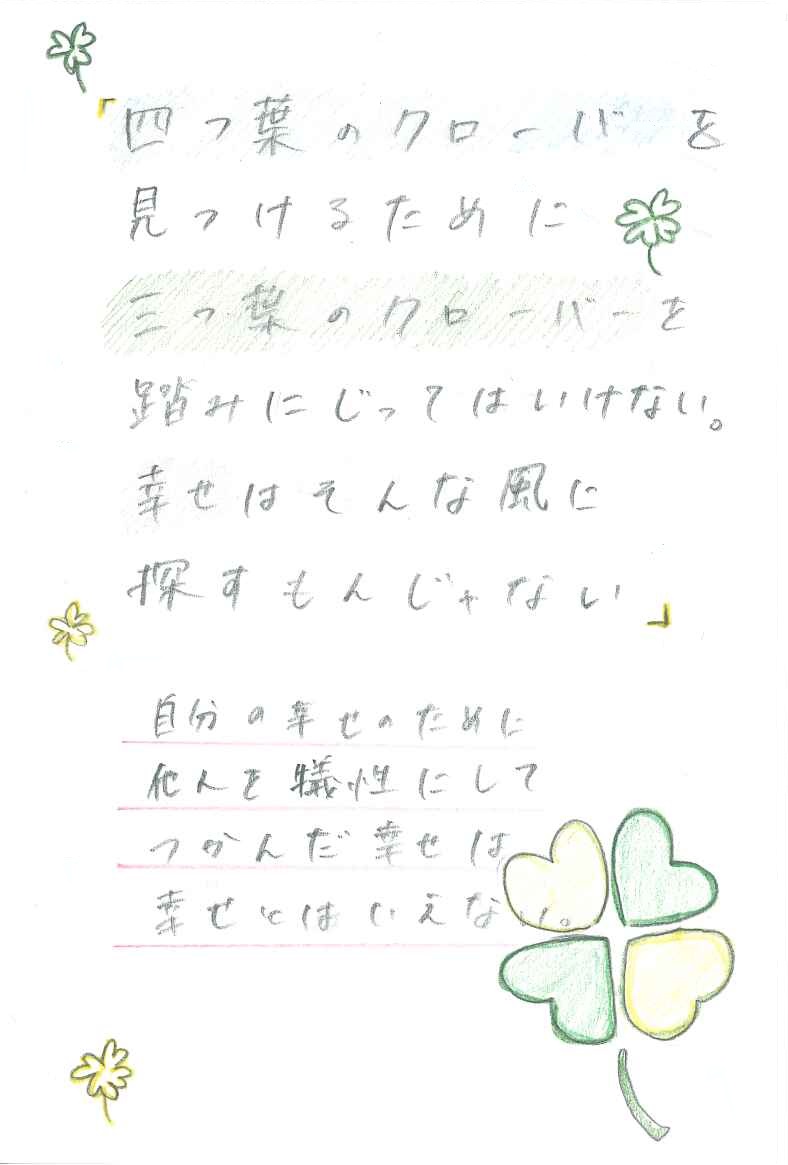 「四つ葉のクローバーを
見つけるために
三つ葉のクローバーを
踏みにじってはいけない。
幸せはそんな風に
探すもんじゃない」
自分の幸せのために
他人を犠牲にして
つかんだ幸せは
幸せとはいえない。